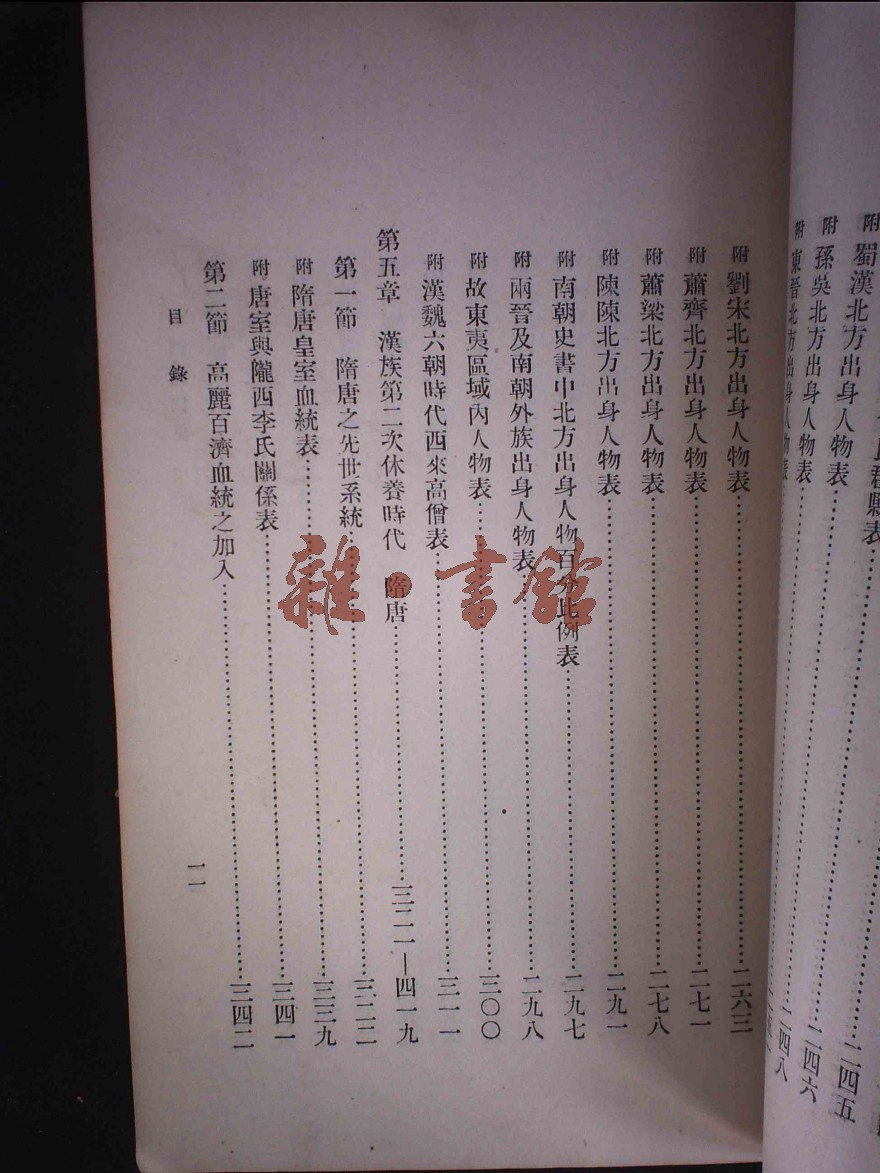 附　蜀漢北方出身人物表……二四五
附　孫吳北方出身人物表……二四六
附　東晉北方出身人物表……二四八
附　劉宋北方出身人物表……二六三
附　蕭齊北方出身人物表……二七一
附　蕭梁北方出身人物表……二七八
附　陳陳北方出身人物表……二九一
附　南朝史書中北方出身人物百分比例表……二九七
附　兩晉及南朝外族出身人物表……二九八
附　故東夷區域內人物表……三〇〇
附　漢魏六朝時代西來高僧表……三一一
第五章　漢族第二次休養時代　隋唐……三二一—四一九
第一節　隋唐之先世系統……三二二
附　隋唐皇室血統表……三三九
附　唐室與隴西李氏關係表……三四一
第二節　高麗百濟血統之加入……三四二
目錄
一一
雜·書館